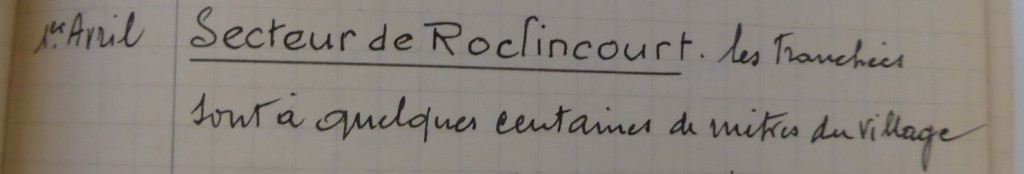 1er Avril Secteur de Roclincourt. les tranchées
sont à quelques centaines de mètres du village